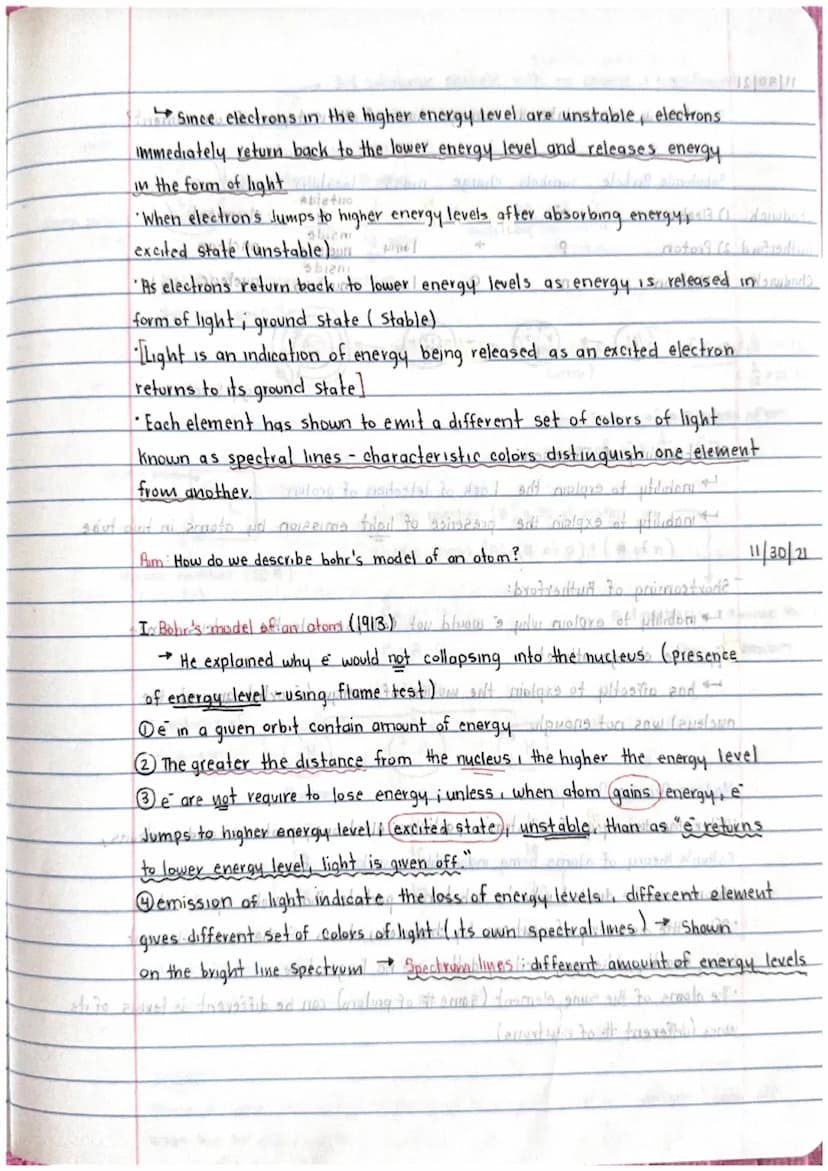 ↳ Since electrons in the higher energy level are unstable, electrons
immediately return back to the lower energy level and releases energy
in the form of light
·When electron's Jumps to higher energy levels after absorbing energy;
excited state (unstable)
·As electrons return back to lower energy levels as energy is released in
form of light; ground state (stable)
·[Light is an indication of energy being released as an excited electron
returns to its ground state]
·Each element has shown to emit a different set of colors of light
known as spectral lines - characteristic colors distinguish one element
from another.
Aim: How do we describe bohr's model of an atom? 11/30/21
I. Bohr's model of an atom (1913)
→ He explained why e⁻ would not collapsing into the nucleus (presence
of energy level - using flame test)
① e⁻ in a given orbit contain amount of energy
② The greater the distance from the nucleus, the higher the energy level
③ e⁻ are not require to lose energy; unless, when atom gains energy, e⁻
Jumps to higher energy level; excited state, unstable, than as "e⁻ returns
to lower energy level, light is given off."
④ emission of light indicate the loss of energy levels, different element
gives different set of colors of light (its own spectral lines) → Shown
on the bright line spectrum → Spectrum lines: different amount of energy levels